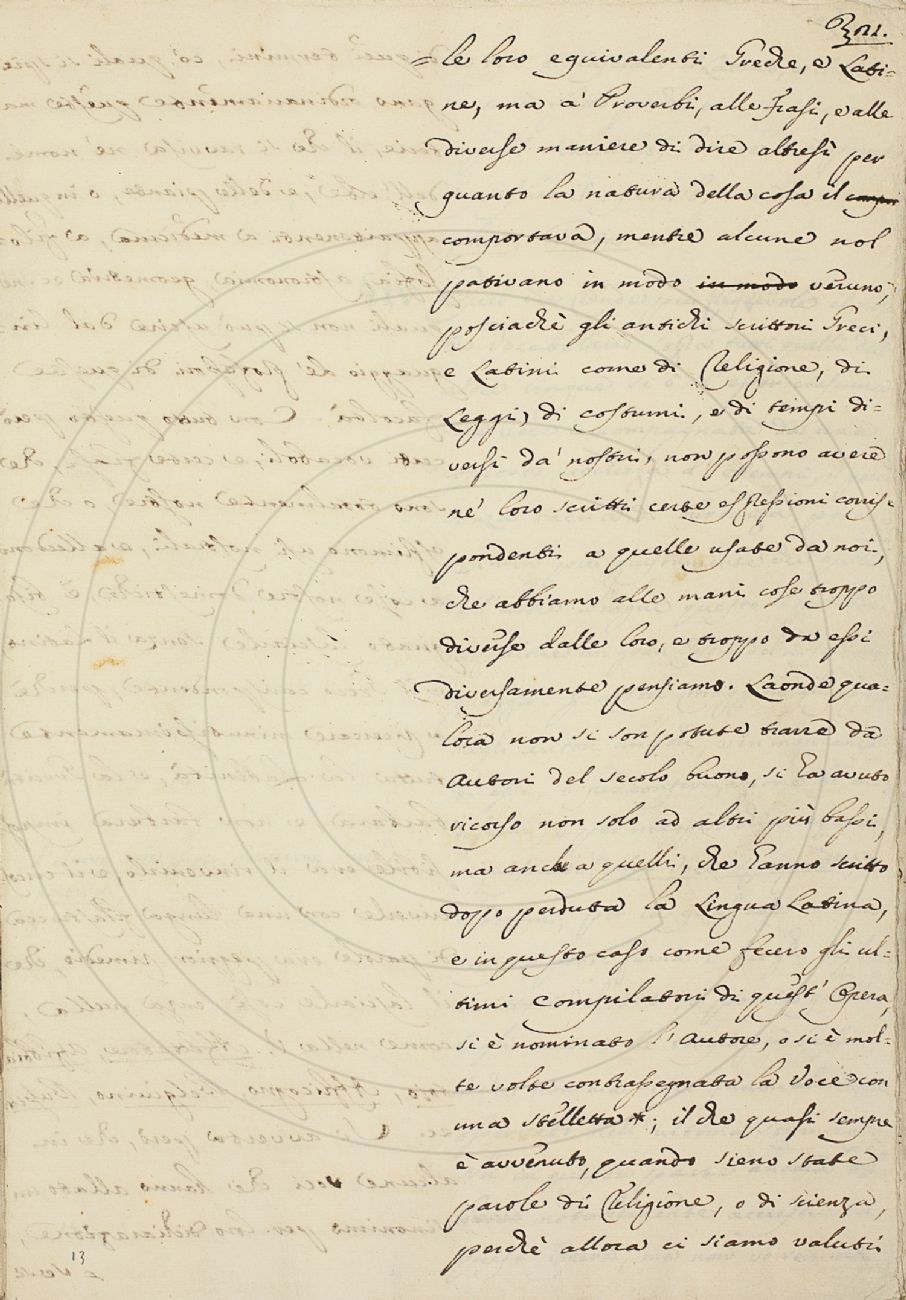 = le loro equivalenti Greche, e Lati=
ne, ma a' Proverbi, alle Frasi, e alle
diverse maniere di dire altresì per
quanto la natura della cosa il compor
comportava, mentre alcune nol
pativano in modo in modo veruno,
posciachè gli antichi scrittori Greci,
e Latini come di Religione, di
Leggi, di costumi, e di tempi di=
versi da' nostri, non possono avere
ne' loro scritti certe espressioni corris=
pondenti a quelle usate da noi,
che abbiamo alle mani cose troppo
diverse dalle loro, e troppo da essi
diversamente pensiamo. Laonde qua=
lora non si son potute trarre da
Autori del secolo buono, si ha avuto
ricorso non solo ad altri più bassi,
ma anche a quelli, che hanno scritto
dopo perduta la Lingua Latina,
e in questo caso come fecero gli ul=
timi Compilatori di quest' Opera,
si è nominato l'Autore, o si è mol=
te volte contrassegnata la Voce con
una stelletta *; il che quasi sempre
è avvenuto, quando sieno state
parole di Religione, o di scienza,
perchè allora ci siamo valuti
13